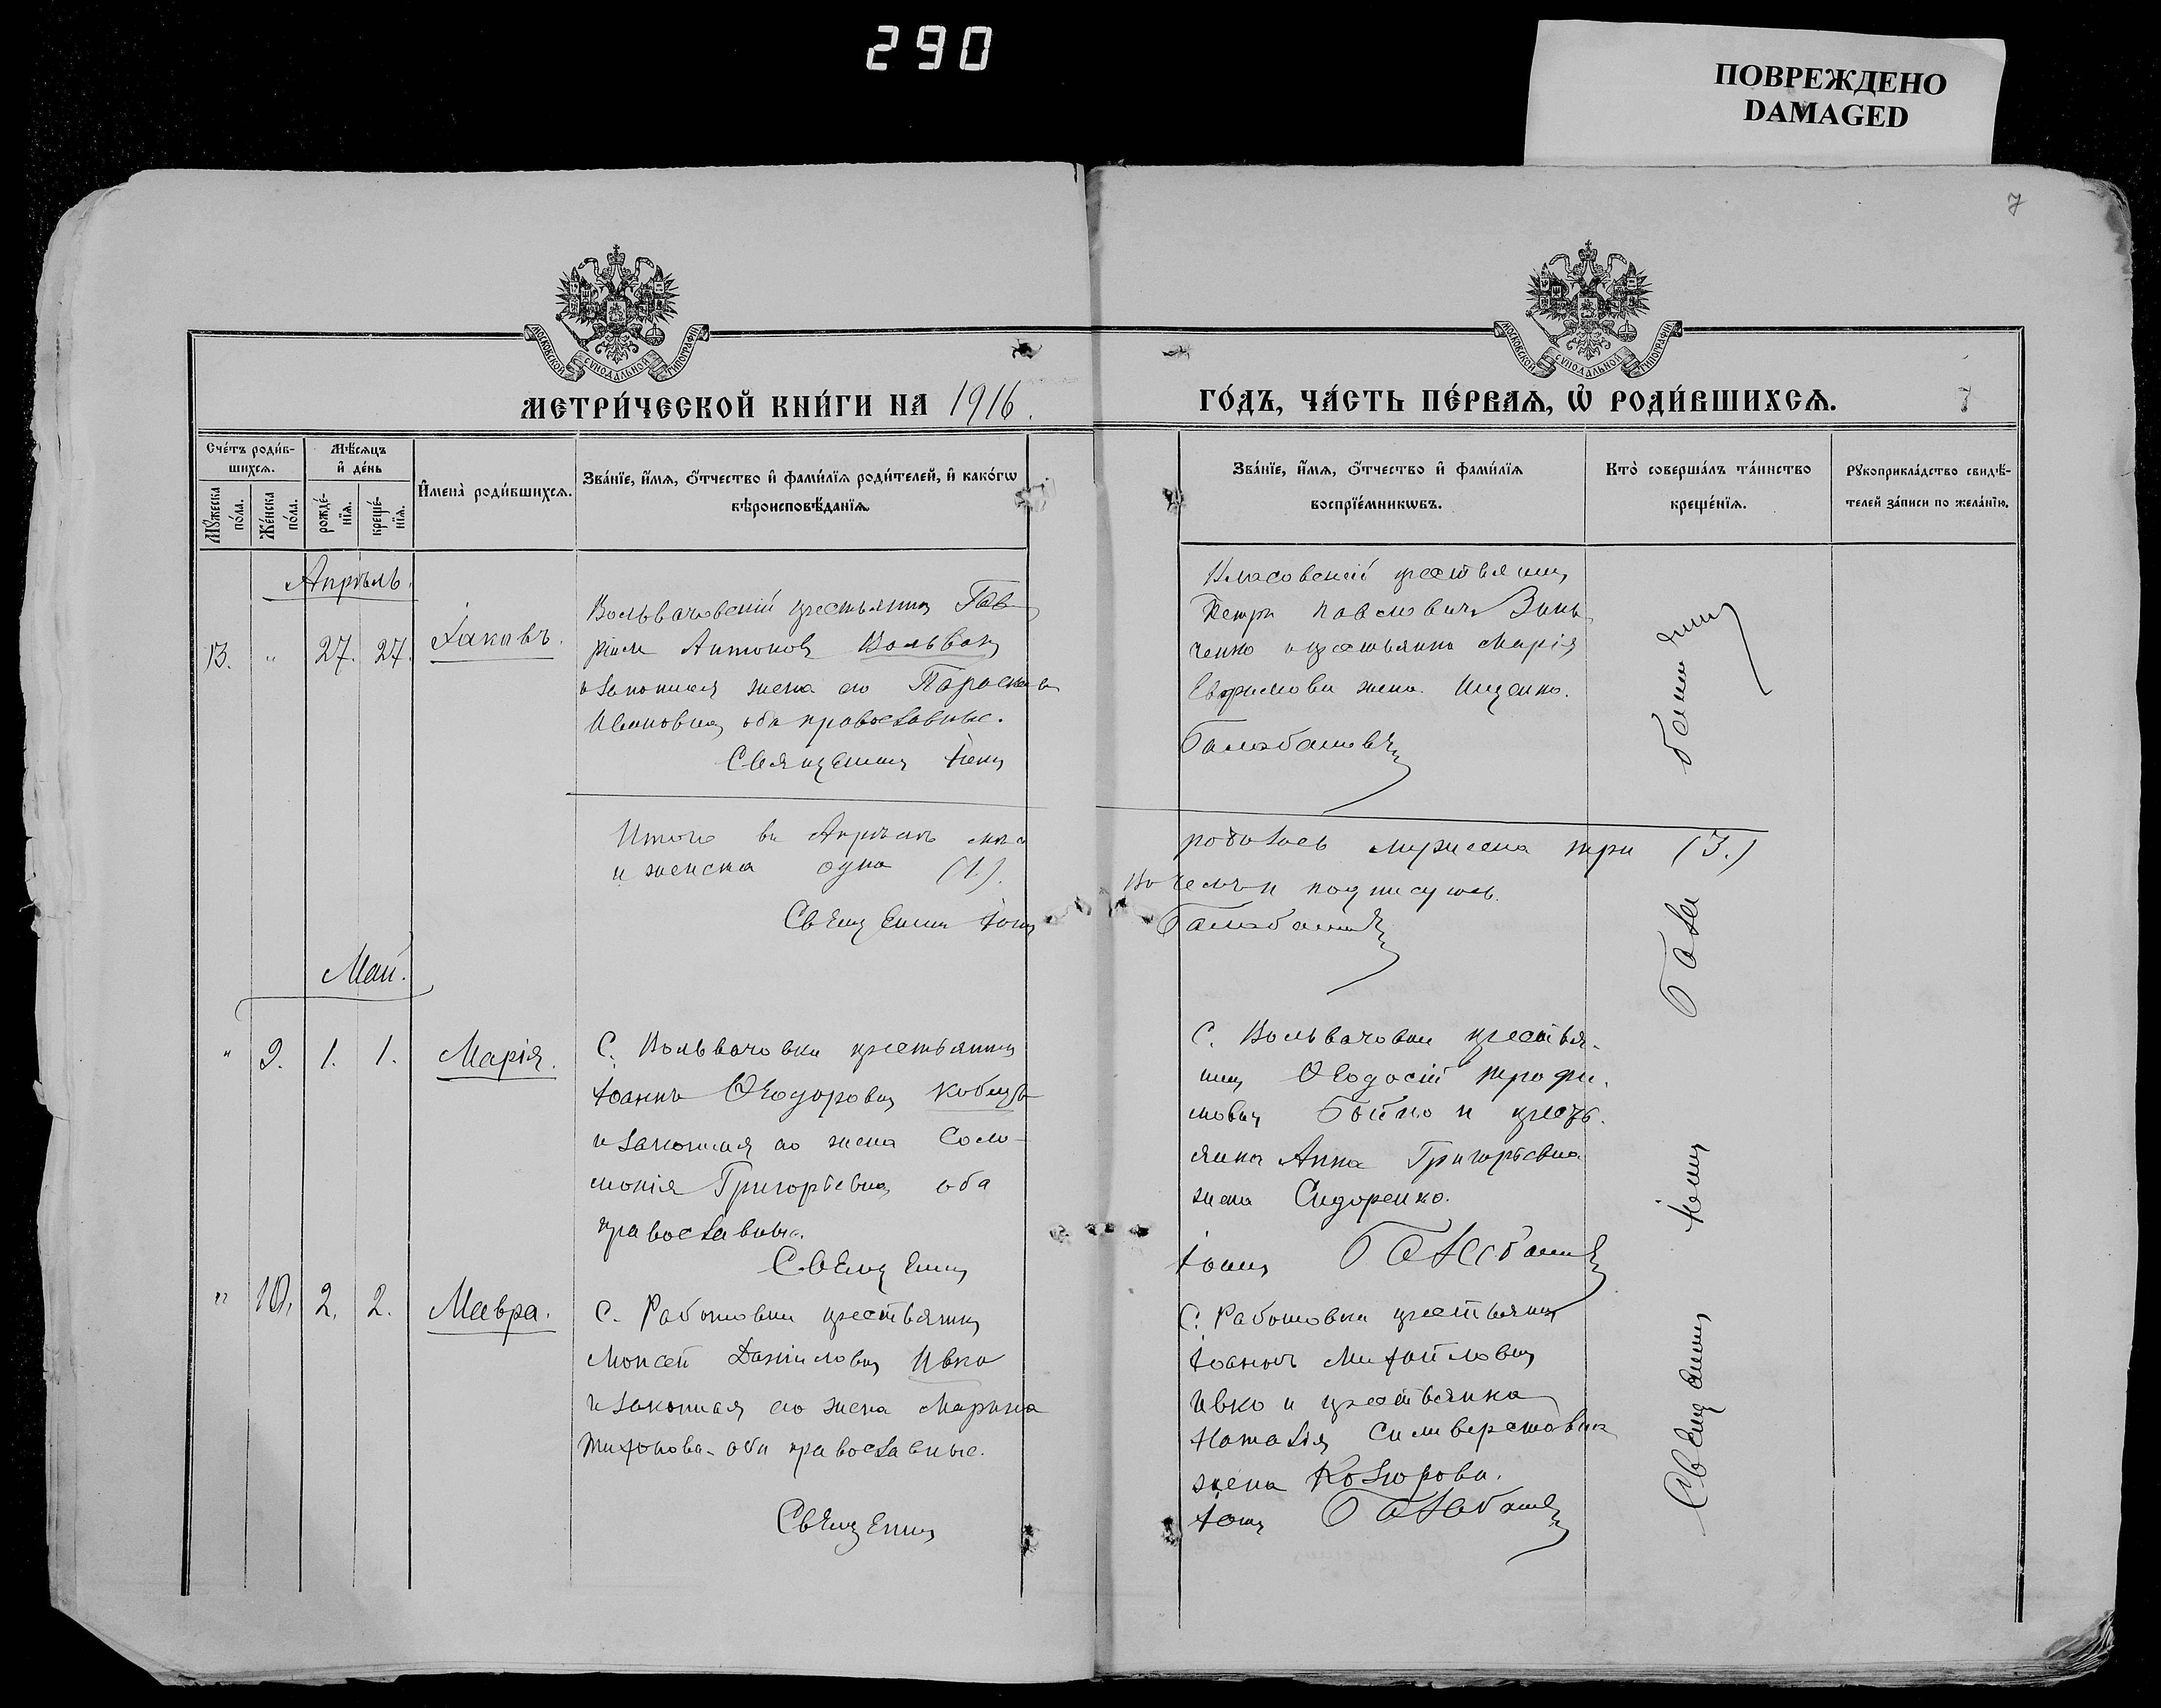 290
ПОВРЕЖДЕНО
DAMAGED
7
МОСКОВСКОЙ СѴНОДАЛЬНОЙ ТИПОГРАФІИ
МОСКОВСКОЙ СѴНОДАЛЬНОЙ ТИПОГРАФІИ
МЕТРИ́ЧЕСКОЙ КНИ́ГИ НА 1916.
ГО́ДЪ, ЧА́СТЬ ПЕ́РВАѦ, Ѡ҆ РОДИ́ВШИХСѦ.
7
Сче́тъ роди́в-
шихсѧ.
Мꙋ́жеска
по́ла.
Же́нска
по́ла.
Мѣ́сѧцъ
и҆ де́нь
рожде́-
нїѧ.
креще́-
нїѧ.
И҆мена̀ роди́вшихсѧ.
Зва́нїе, и҆́мѧ, ѻ҆́тчество и҆ фами́лїѧ роди́телей, и҆ како́гѡ
вѣроисповѣ́данїѧ.
Зва́нїе, и҆́мѧ, ѻ҆́тчество и҆ фами́лїѧ
воспрїе́мникѡвъ.
Кто̀ соверша́лъ та́инство
креще́нїѧ.
Рꙋкоприкла́дство свидѣ́-
телей за́писи по жела́нїю.
Апрѣль.
13. " 27. 27. Іаковъ.
Вольвачовскій крестьянинъ Гав
ріилъ Антоновъ Вольвач
и законная жена его Параскева
Ивановна, оба православные.
Священникъ Іоаннъ
крестьянинъ
Петръ Павловичъ Зинь
ченко и крестьянка Марія
Евфимова жена Ищенко.
Балабановъ
Итого въ Апрѣлѣ мѣс
и женска одна (1).
Священникъ Іоаннъ
родилось мужеска три (3.)
въ чемъ и подписуюсь
Балабановъ
Май.
" 9. 1. 1. Марія.
С. Вольвачовки крестьянинъ
Іоаннъ Ѳеодоровъ
и законная его жена Соло-
монія Григорьевна, оба
православные.
Священникъ
С. Вольвачовки крестья-
нинъ Ѳеодосій Трофи-
мовъ Бойко и кресть-
янка Анна Григорьевна
жена Сидоренко.
Іоаннъ Балабановъ
" 10. 2. 2. Мавра.
С. Работовки крестьянинъ
Моисей Даніиловъ Ивко
и законная его жена Марина
Тихонова - оба православные.
Священникъ
С. Работовки крестьянинъ
Іоаннъ Михайловъ
Ивко и крестьянка
Наталія Сильверстовна
жена Козырова.
Іоаннъ Балабановъ
Священникъ Іоаннъ Бала
бановъ